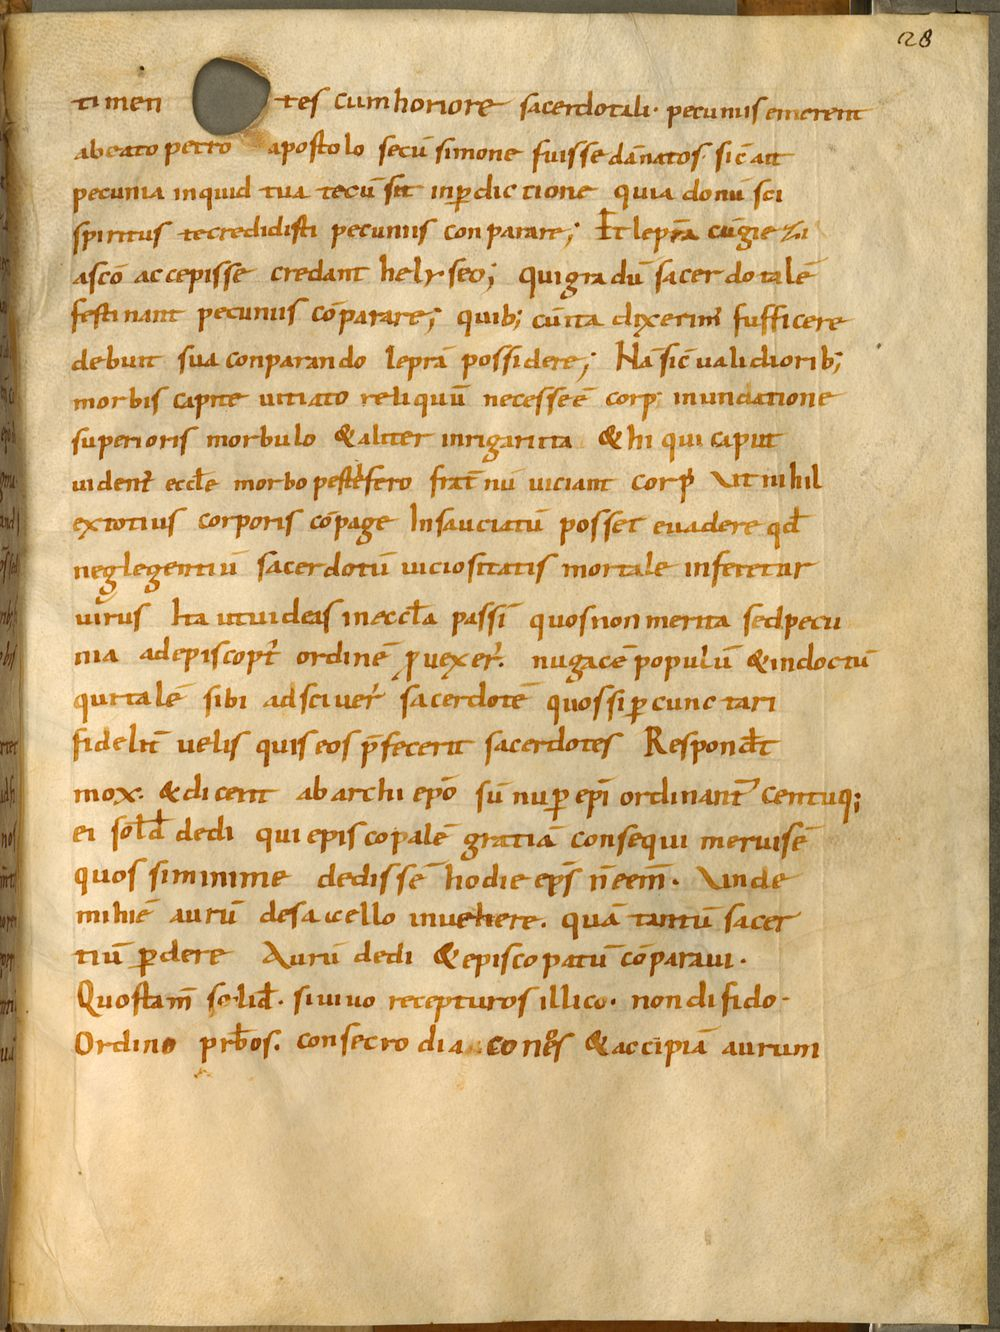 28
timen tes cum honore sacerdotali· pecuniis emerent
abeato petro apostolo secū simone fuisse dānatos· sic̄ ait
pecunia inquid tua tecū sit inꝑdictione quia donū sc̄i
spiritus te credidisti pecuniis conparare; Et leprā cū gie zi
asco accepisse credant helyseo; qui gradū sacerdotalē
festinant pecuniis cōparare; quib; cū ita dixerim̄ sufficere
debuit sua conparando leprā possidere; Nā sic̄ ualidiorib;
morbis capite uitiato reliquū necesse ē corp; inundatione
superioris morbulo & aliter inrigari ita & hi qui caput
uident᷑ eccłe morbo pestefero frat̄nū uiciant corp᷑ Ut nihil
ex totius corporis cōpage Insauciatū posset euadere qđ
neglegentiū sacerdotū uiciositatis mortale inferetur
uirus Ita ut uideas in eccła passī quos non merita sed pecu
nia ad episcopt᷑ ordinē ꝓuexer᷑. nugacē populū & indoctū
qui talē sibi adsciuer᷑ sacerdotē quos si ꝑcunctari
fidelit̄ uelis quis eos p̄fecerit sacerdotes Respondēt
mox. & dicent ab archiepō sū nuꝑ epī ordinant᷑ centuq;
ei solđ dedi qui episcopalē gratiā consequi meruisē
quos si minime dedissē hodie ep̄s n̄ eem̄. Unde
mihi ē aurū de sacello inuehere. quā tantū sacer
tiū ꝑdere Aurū dedi & episcopatū cōparaui.
Quos tam̄ soliđ. si uiuo recepturos illico. non difido.
Ordino prb̄os. consecro diacones & accipiā aurum